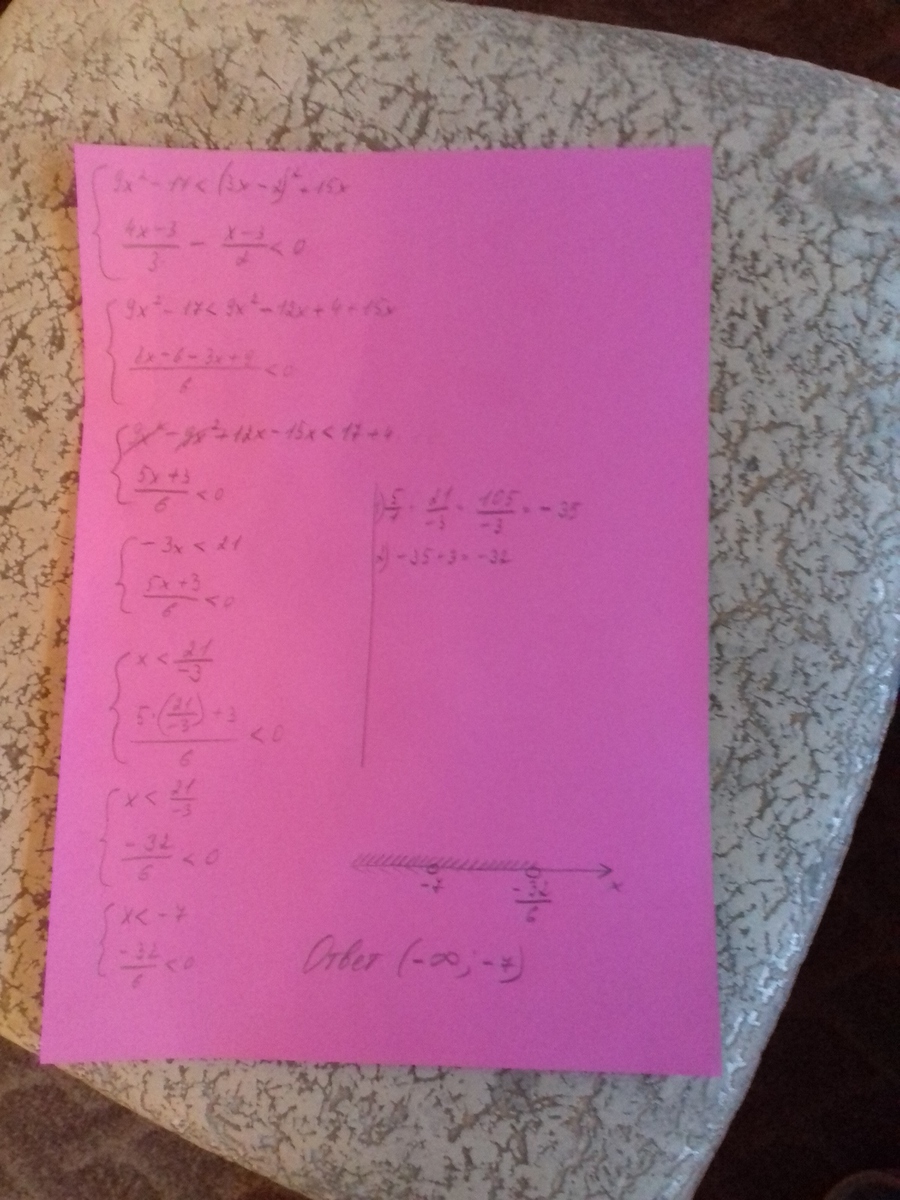 9x² - 17 < (3x - 2)² + 15x
(4x-3)/3 - (x-3)/2 < 0
9x² - 17 < 9x² - 12x + 4 + 15x
(8x-6-3x+9)/6 < 0
9x² - 9x² + 12x - 15x < 17 + 4
(5x+3)/6 < 0
- 3x < 21
(5x+3)/6 < 0
x < 21/-3
(5·(21/-3)+3)/6 < 0
x < 21/-3
-32/6 < 0
x < -7
-32/6 < 0
1) 5/1 · 21/-3 = 105/-3 = -35
2) -35+3 = -32
-7 -32/6 x
Ответ (-∞; -7)